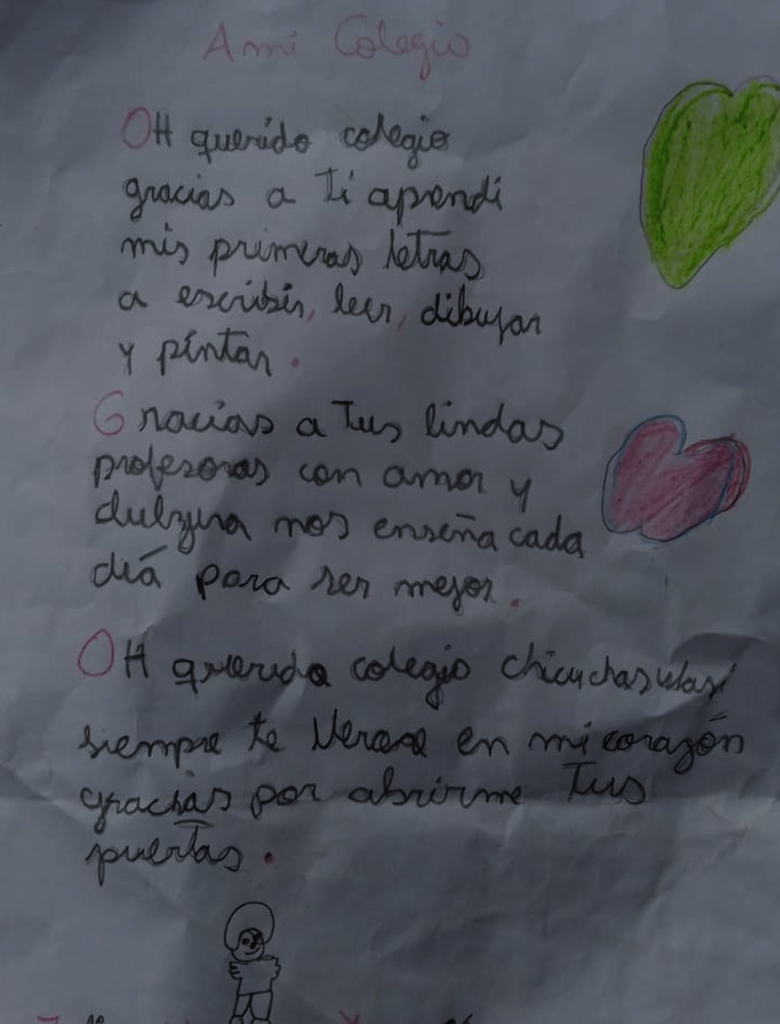 A mi Colegio
OH querido colegio
gracias a ti aprendi
mis primeras letras
a escribir, leer, dibujar
y pintar.
Gracias a tus lindas
profesoras con amor y
dulzura nos enseña cada
diá para ser mejor.
OH querido colegio
siempre te en mi corazón
gracias por abrirme tus
puertas.